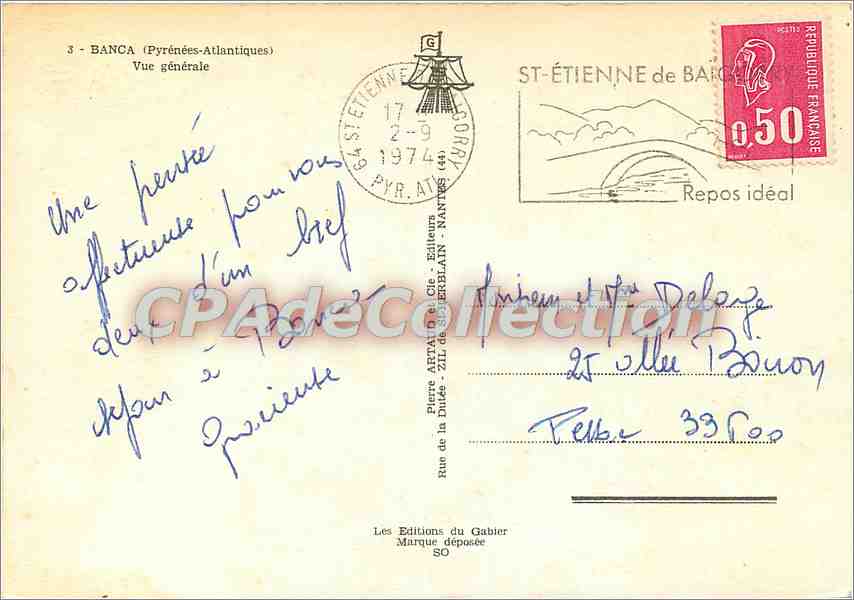 3 - BANCA (Pyrénées-Atlantiques)
Vue générale
G
64 ST ETIENNE
GORRY
17
2-9
1974
PYR. ATL
ST-ÉTIENNE de BAIGORRY
Repos idéal
POSTES
RÉPUBLIQUE FRANÇAISE
0,50
Une pensée
affectueuse pour vous
deux d'un bref
séjour à Banca
Pierre ARTAUD et Cie - Editeurs
Rue de la Dutée - ZIL de St-HERBLAIN - NANTES (44)
Monsieur et Mme Delage
25 allée
33500
CPAdeCollection.com
Les Editions du Gabier
Marque déposée
SO